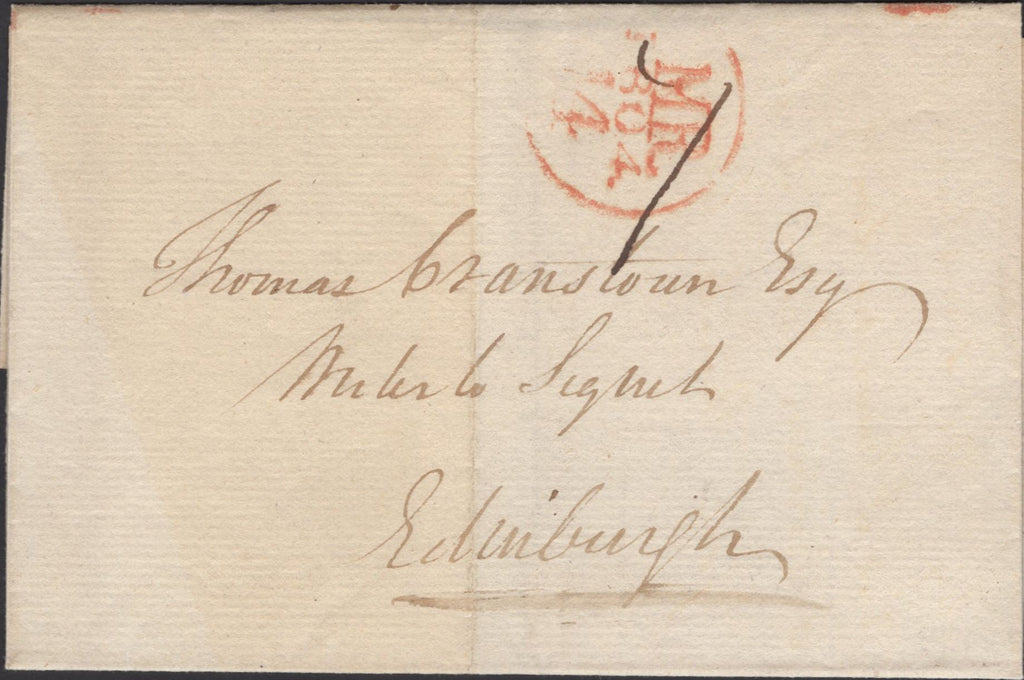 MR
804
14
Thomas Cranstoun Esq
Writer to Signet
Edinburgh